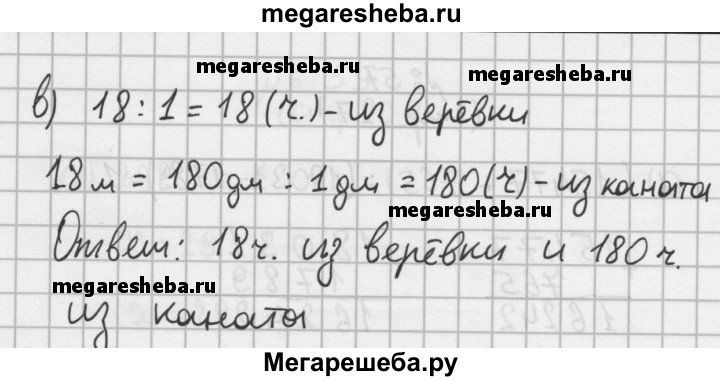 megaresheba.ru
megaresheba.ru
megaresheba.ru
в) 18 : 1 = 18 (ч.) - из верёвки
18 м = 180 дм : 1 дм = 180 (ч) - из каната
megaresheba.ru
Ответ: 18 ч. из верёвки и 180 ч.
megaresheba.ru
из каната
Мегарешеба.ру